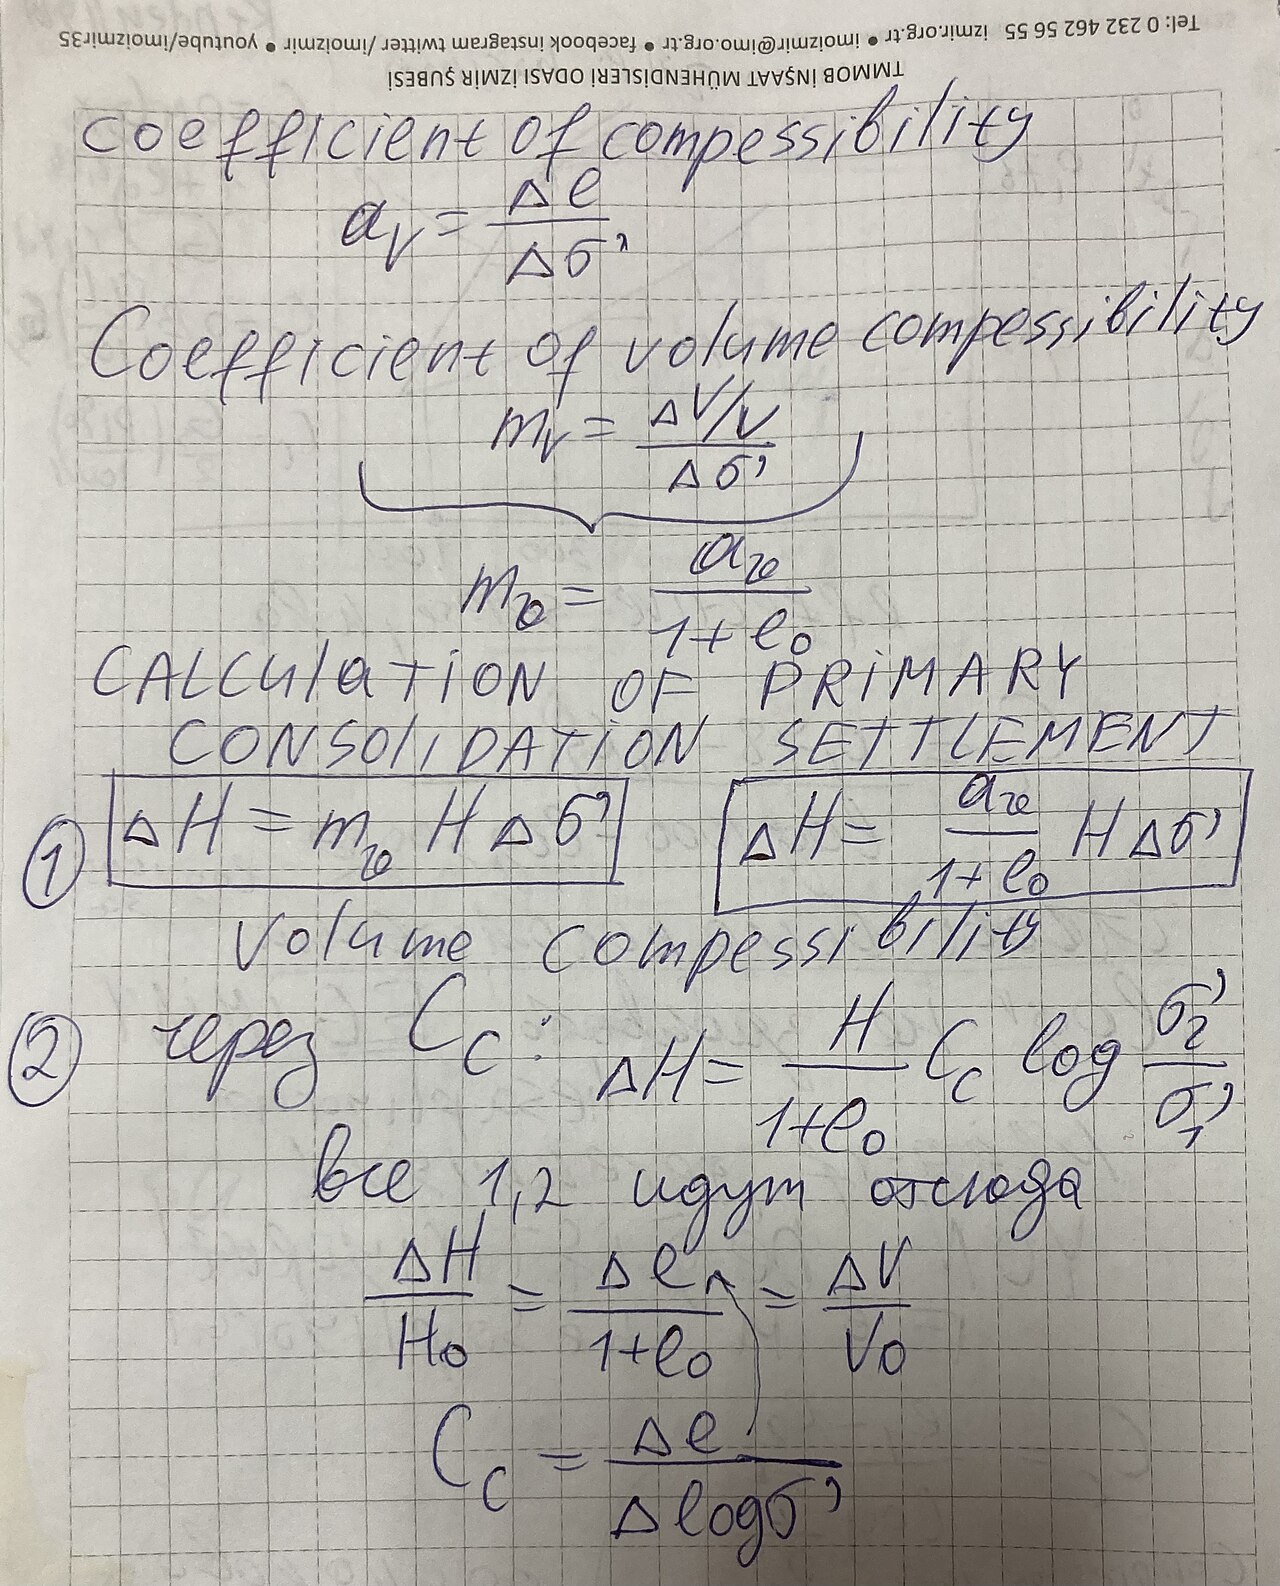 Tel: 0 232 462 56 55 izmir.org.tr • imoizmir@imo.org.tr • facebook instagram twitter /imoizmir • youtube/imoizmir35
TMMOB İNŞAAT MÜHENDİSLERİ ODASI İZMİR ŞUBESİ
coefficient of compessibility
a_v = Δe / Δσ'
Coefficient of volume compessibility
m_v = ΔV/V / Δσ'
m_v = a_v / 1+e_0
CALCUlATION OF PRIMARY
CONSOlIDATION SETTLEMENT
① ΔH = m_v H Δσ' ΔH = a_v / 1+e_0 H Δσ'
Volume compessibility
② через C_c: ΔH = H / 1+e_0 C_c log σ'_2 / σ'_1
все 1,2 идут отсюда
ΔH / H_0 = Δe / 1+e_0 = ΔV / V_0
C_c = Δe / Δlogσ'